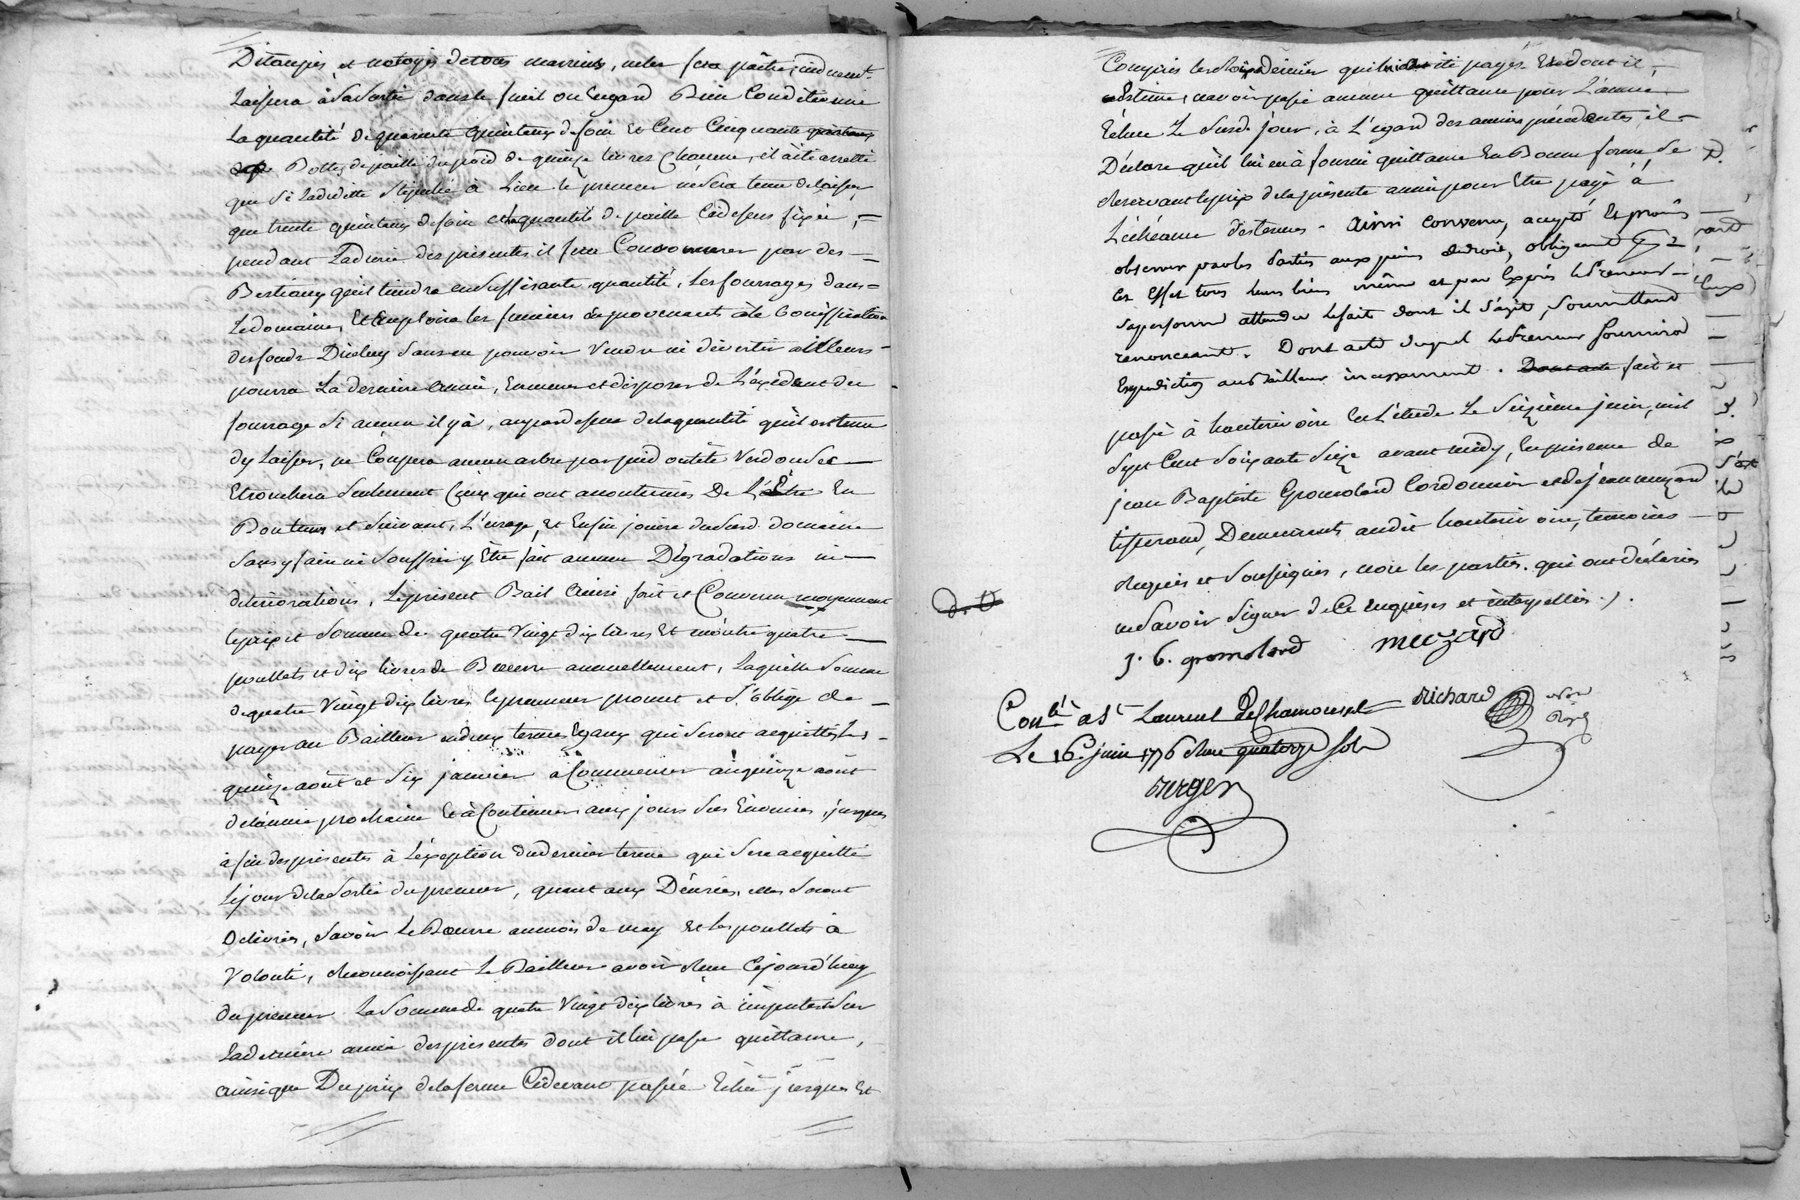 Ditoupiés et nétoyés de tous marrins, ne les fera paître indument
Laissera à sa sortie dans le fueil ou hugard Bien Conditionnée
La quantité de quarante quintaux de foin et Cent Cinquante
Bottes de paille du poid de quinze livres Chacune, il a été arretté
que si La
que trente quintaux de foin et la quantité de paille Cidessus fixée,
pendant La durée des présentes il fera Consommer par des
Bestiaux qu'il tiendra en suffisante quantité, Les fourrages dans
Le domaine, Et Emploira les fumiers en provenants à la boniffication
des fonds Diceluy sans en pouvoir vendre ni divertir ailleurs
pourra La derniere année, Emmener et disposer de L'éxcédent du
fourrage si aucun il y à, au par dessus de la quantité qu'il est tenu
dy Laisser, ne Coupera aucun arbre par pied ni tête verd ou sec
Et rombera seulement Ceux qui ont accoutumés De L'Etre En
Bon tems et suivant L'usage, et Enfin jouira dud domaine
sans y faire ni souffrir y être fait aucunes Dégradations ni
déteriorations, Le present Bail Ainsi fait et Convenu moyennant
Le prix et somme de quatre vingt dix livres Et en outre quatre
poullets et dix livres de Beurre annuellement, Laquelle somme
de quatre vingt dix livres Le preneur promet et s'oblige de
payer au Bailleur en deux termes Egaux qui seront acquittés Les
quinze août et six janvier à Commencer au quinze août
de l'année prochaine Et à Continuer aux jours sus Enoncés, jusques
à fin des présentes à L'éxception du dernier terme qui sera acquitté
Le jour de la sortie du preneur, quant aux Denrées, elles seront
Delivrées, savoir Le Beurre au mois de may Et les poullets à
volonté, Reconnoissant Le Bailleur avoir Reçu Cejourd'huy
du preneur La somme de quatre vingt dix livres à imputer sur
La derniere année des présentes dont il lui passe quittance,
ainsi que Du prix de la ferme Cidevant passée Echu jusques Et
Compris les dernier qui lui ont été payés Et dont il
Estime n'avoir passé aucune quittance pour L'année
Echue Le jour, à L'égard des années précédentes, il
Déclare qu'il lui en à fourni quittance En Bonne forme, se
Reservant le prix de la présente année pour Etre payé à
L'échéance des termes. Ainsi convenu, accepté Et promis
observer par les Parties aux peines de droit, obligeant
Cet Effet tous leurs biens même et par Exprés le Preneur
sa personne attendu le fait dont il s'agit, soumettant
renonceant. Dont acte duquel le Preneur fournira
Expedition au Bailleur incessamment. Dont acte fait et
passé à hauterivoire En L'étude Le seizième juin, mil
sept Cent soixante seize avant midy, En présence de
jean Baptiste Gromolard Cordonnier et de jean muzard
tisserand, Demeurants audit hauterivoire, temoins
Requis et soussignés, non les parties qui ont déclarées
ne savoir signer de Ce Enquises et interpellées ./.
d. D
j. b. gromolard
muzard
Richard
Con.lé à S.t Laurent de Chamousset
Le 16.e juin 1776 Reçu quatorze sols
Berger